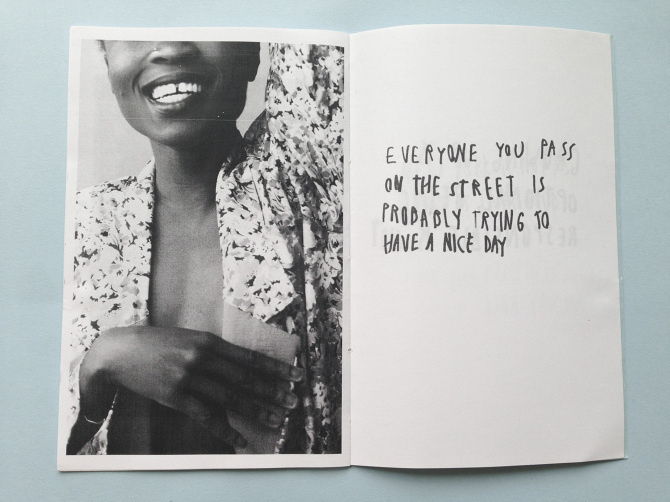 EVERYONE YOU PASS
ON THE STREET IS
PROBABLY TRYING TO
HAVE A NICE DAY